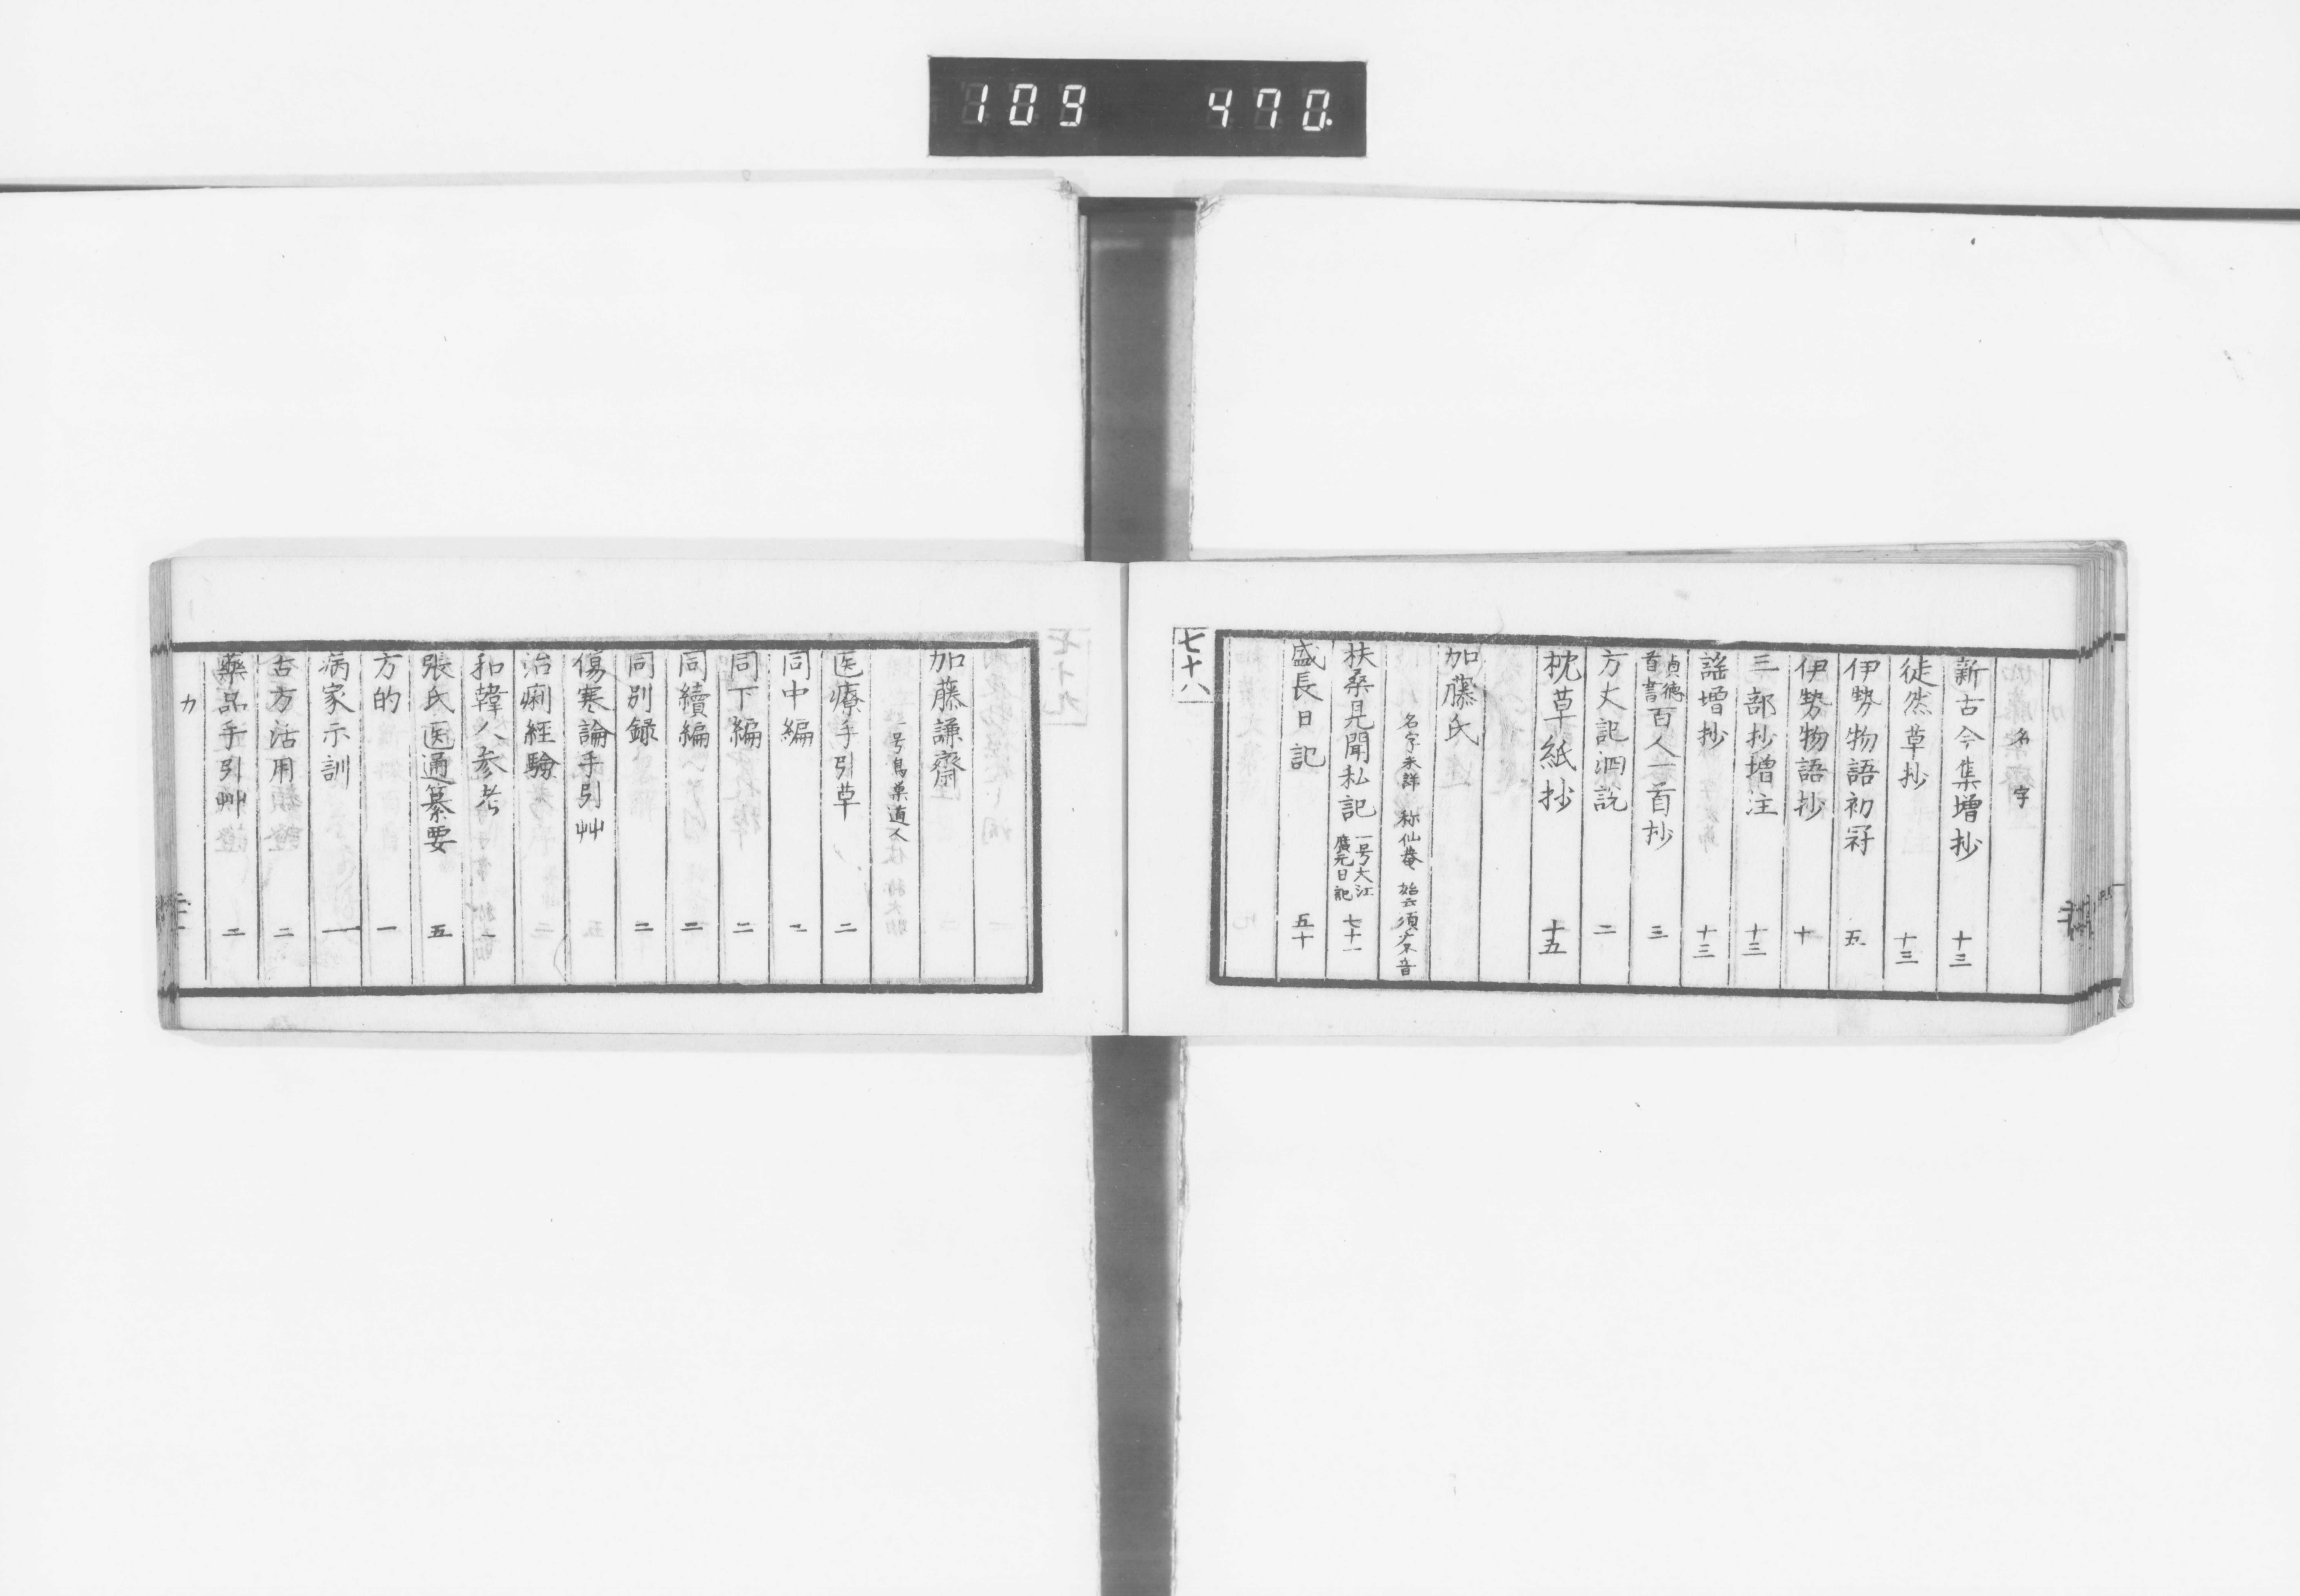 109 470
名 字
新古今集増抄 十三
徒然草抄 十三
伊勢物語初冠 五
伊勢物語抄 十
三部抄増注 十三
謡増抄 十三
貞徳首書百人一首抄 三
方丈記泗説 二
枕草紙抄 十五
加藤氏
名字未詳 称仙菴 始云須
扶桑見聞私記 一号大江廣元日記 七十一
盛長日記 五十
七十八
加藤謙齋
一号烏巣道人
医療手引草 二
同中編 二
同下編 二
同續編 二
同別録 二
傷寒論手引艸
治痢經驗
和韓人参考 一
張氏医通纂要 五
方的 一
病家示訓 一
古方活用 二
藥品手引艸 二
カ